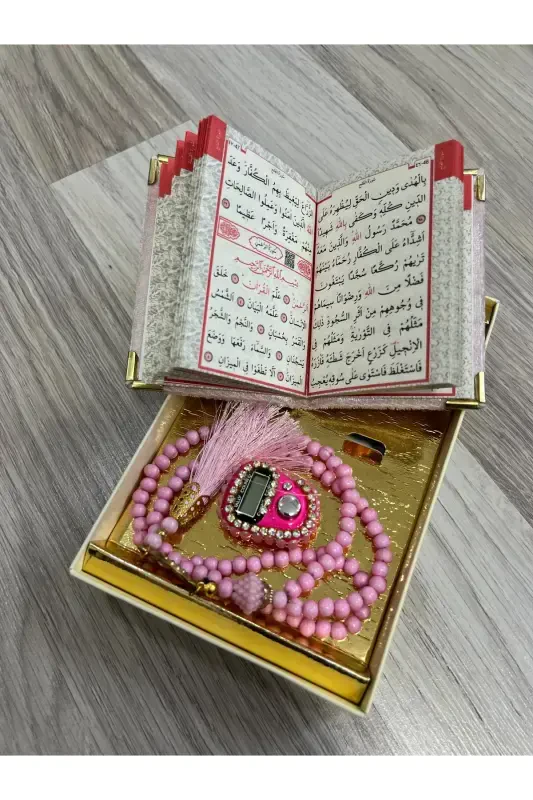 بِالْهُدٰى وَدِينِ الْحَقِّ لِيُظْهِرَهُ عَلَى
الدِّينِ كُلِّهِ وَكَفٰى بِاللّٰهِ شَهِيدًا
مُحَمَّدٌ رَسُولُ اللّٰهِ وَالَّذِينَ مَعَهُ
اَشِدَّاءُ عَلَى الْكُفَّارِ رُحَمَاءُ بَيْنَهُمْ
تَرٰيهُمْ رُكَّعًا سُجَّدًا يَبْتَغُونَ
فَضْلًا مِنَ اللّٰهِ وَرِضْوَانًا سِيمَاهُمْ
فِي وُجُوهِهِمْ مِنْ اَثَرِ السُّجُودِ ذٰلِكَ
مَثَلُهُمْ فِي التَّوْرٰيةِ وَمَثَلُهُمْ فِي
الْاِنْجِيلِ كَزَرْعٍ اَخْرَجَ شَطْـَٔهُ فَاٰزَرَهُ
فَاسْتَغْلَظَ فَاسْتَوٰى عَلٰى سُوقِهِ يُعْجِبُ
الزُّرَّاعَ لِيَغِيظَ بِهِمُ الْكُفَّارَ وَعَدَ
اللّٰهُ الَّذِينَ اٰمَنُوا وَعَمِلُوا الصَّالِحَاتِ
مِنْهُمْ مَغْفِرَةً وَاَجْرًا عَظِيمًا
سُورَةُ الرَّحْمٰنِ
بِسْمِ اللّٰهِ الرَّحْمٰنِ الرَّحِيمِ
اَلرَّحْمٰنُ عَلَّمَ الْقُرْاٰنَ خَلَقَ
الْاِنْسَانَ عَلَّمَهُ الْبَيَانَ اَلشَّمْسُ
وَالْقَمَرُ بِحُسْبَانٍ وَالنَّجْمُ وَالشَّجَرُ
يَسْجُدَانِ وَالسَّمَاءَ رَفَعَهَا وَوَضَعَ
الْمِيزَانَ اَلَّا تَطْغَوْا فِي الْمِيزَانِ